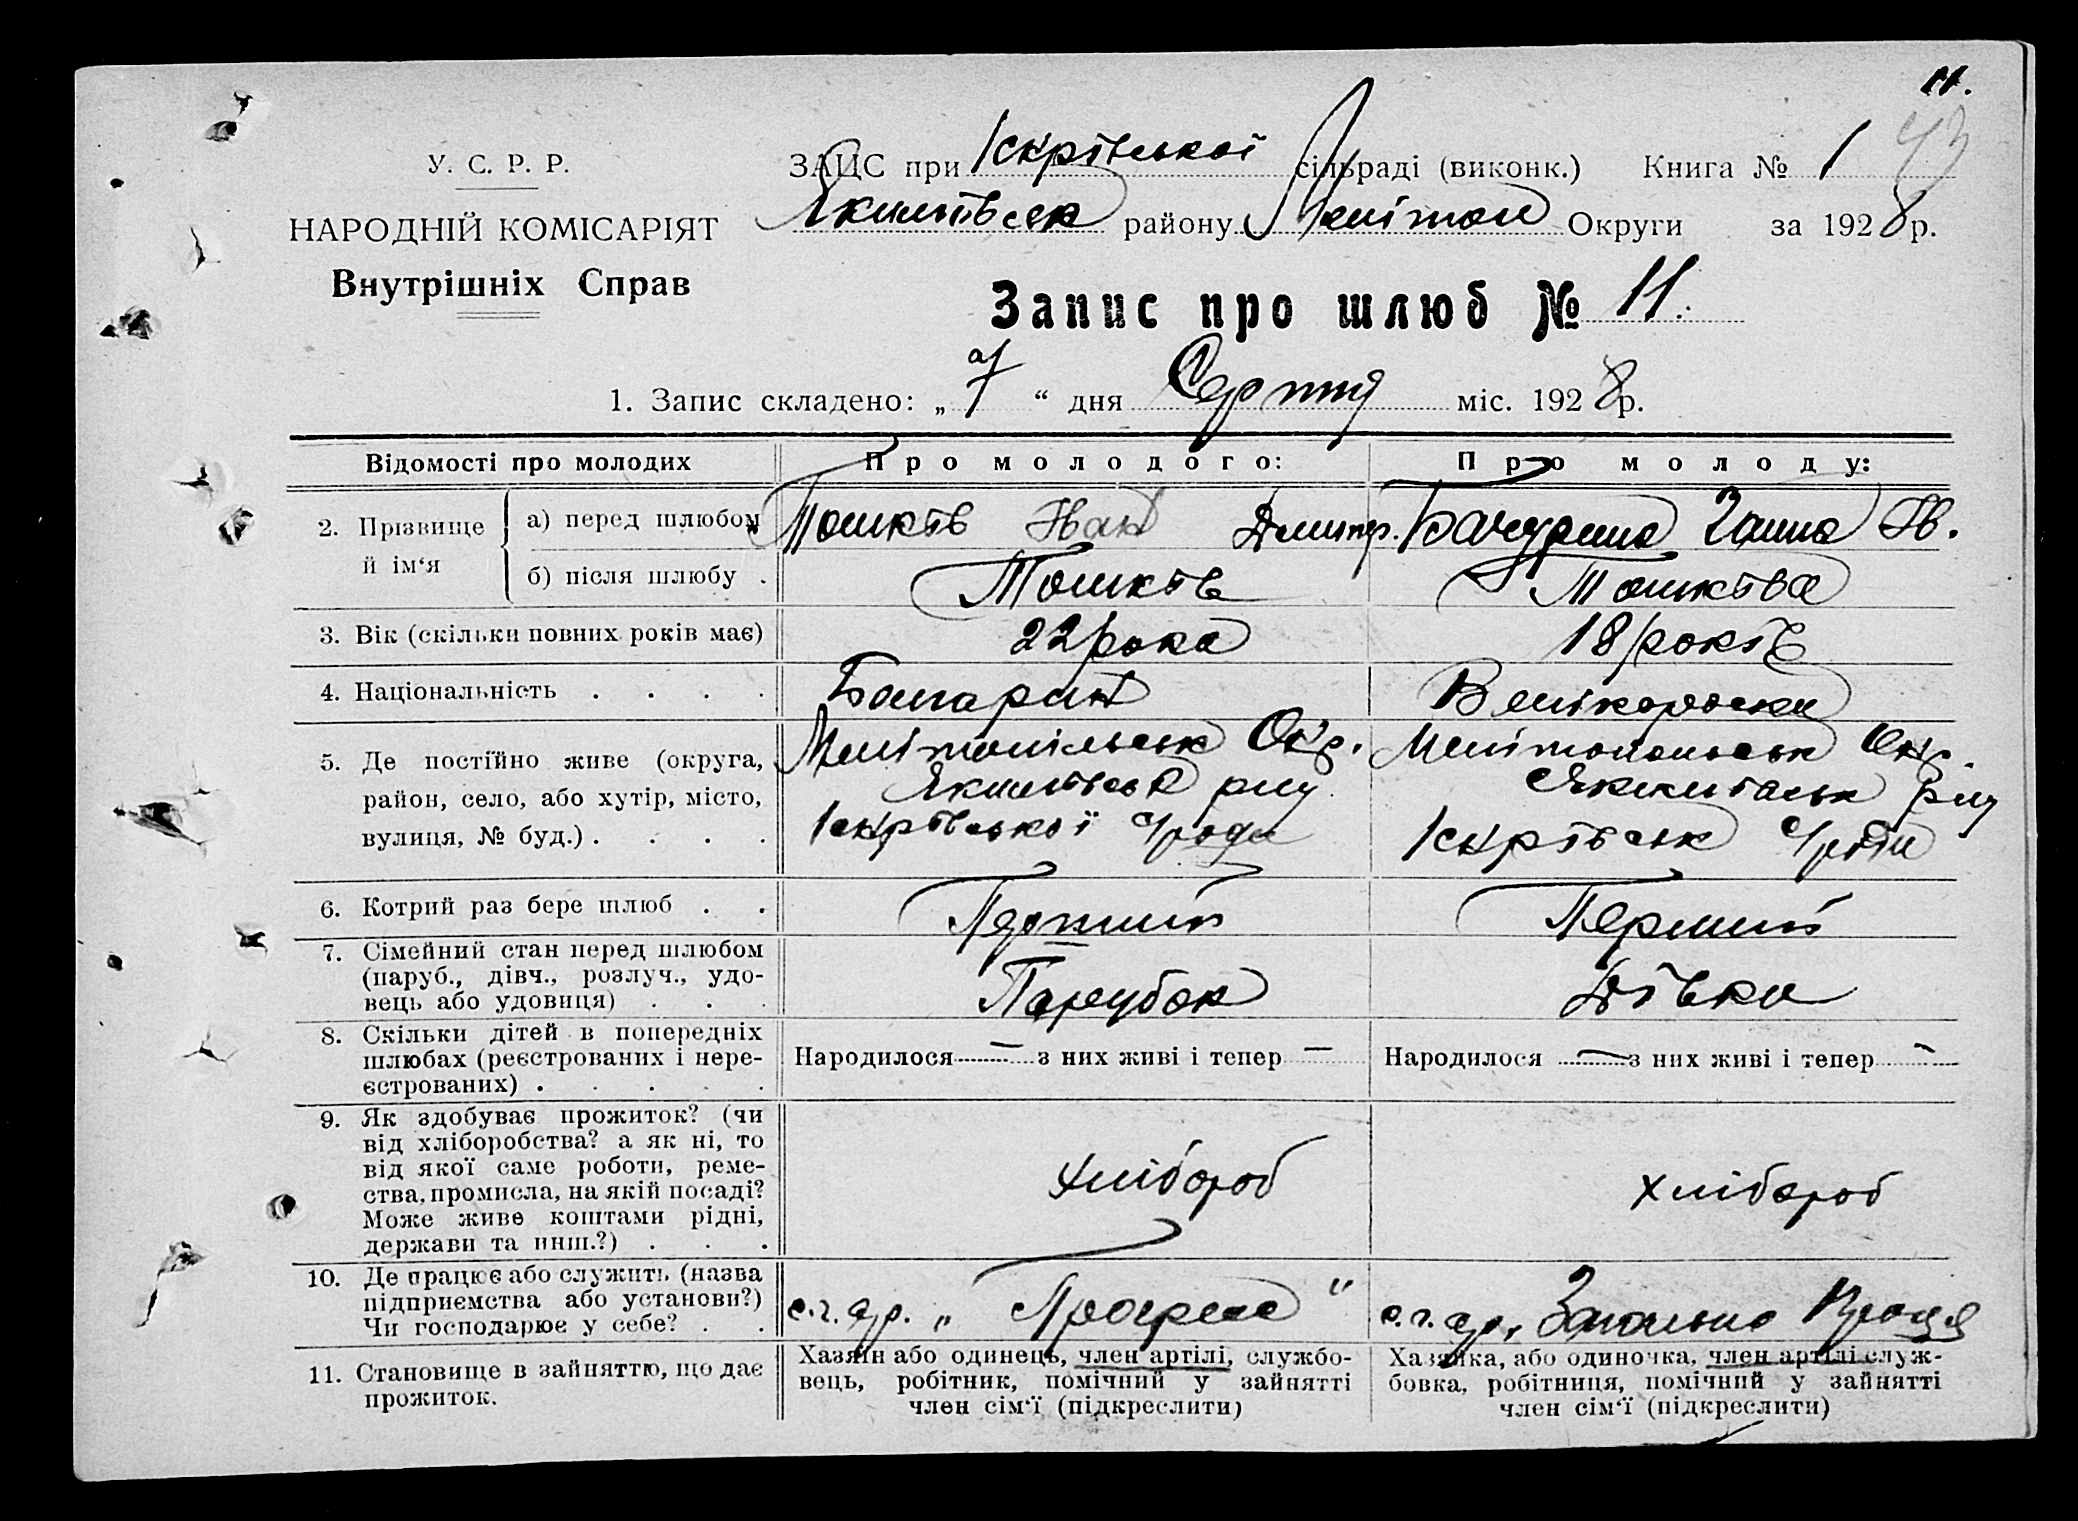 11.
43
У. С. Р. Р.
НАРОДНІЙ КОМІСАРІЯТ
Внутрішніх Справ
ЗАЦС при Іскрівської сільраді (виконк.) Книга № 1
Якимівськ району Мелітоп Округи за 1928 р.
Запис про шлюб № 11.
1. Запис складено: „ 7 “ дня Серпня міс. 1928 р.
Відомості про молодих Про молодого: Про молоду:
2. Прізвище й ім‘я
а) перед шлюбом Тошків Іван Дмитр. Бачурина Ганна Ів.
б) після шлюбу . Тошків Тошківа
3. Вік (скільки повних років має) 22 рока 18 років
4. Національність . . . . Болгарин Велікороски
5. Де постійно живе (округа,
район, село, або хутір, місто,
вулиця, № буд.) . . . .
Мелітопільськ Окр.
Якимівськ р-ну
Іскрівської с/ради
Мелітопольськ Окр.
Якимівськ р-ну
Іскрівськ с/ради
6. Котрий раз бере шлюб . . Перший Перший
7. Сімейний стан перед шлюбом
(паруб., дівч., розлуч., удо-
вець або удовиця) . . .
Парубок Дівка
8. Скільки дітей в попередніх
шлюбах (реєстрованих і нере-
єстрованих) . . . . .
Народилося — з них живі і тепер — Народилося — з них живі і тепер —
9. Як здобуває прожиток? (чи
від хліборобства? а як ні, то
від якої саме роботи, реме-
ства, промисла, на якій посаді?
Може живе коштами рідні,
держави та инш.?) . . .
хлібороб хлібороб
10. Де працює або служить (назва
підприємства або установи?)
Чи господарює у себе? . .
с.г. ар. „Прогрес“ с.г. ар. Загальна Праця
11. Становище в зайняттю, що дає
прожиток.
Хазяїн або одинець, член артілі, службо-
вець, робітник, помічний у зайнятті
член сім‘ї (підкреслити)
Хазяйка, або одиночка, член артілі служ-
бовка, робітниця, помічний у зайнятті
член сім‘ї (підкреслити)